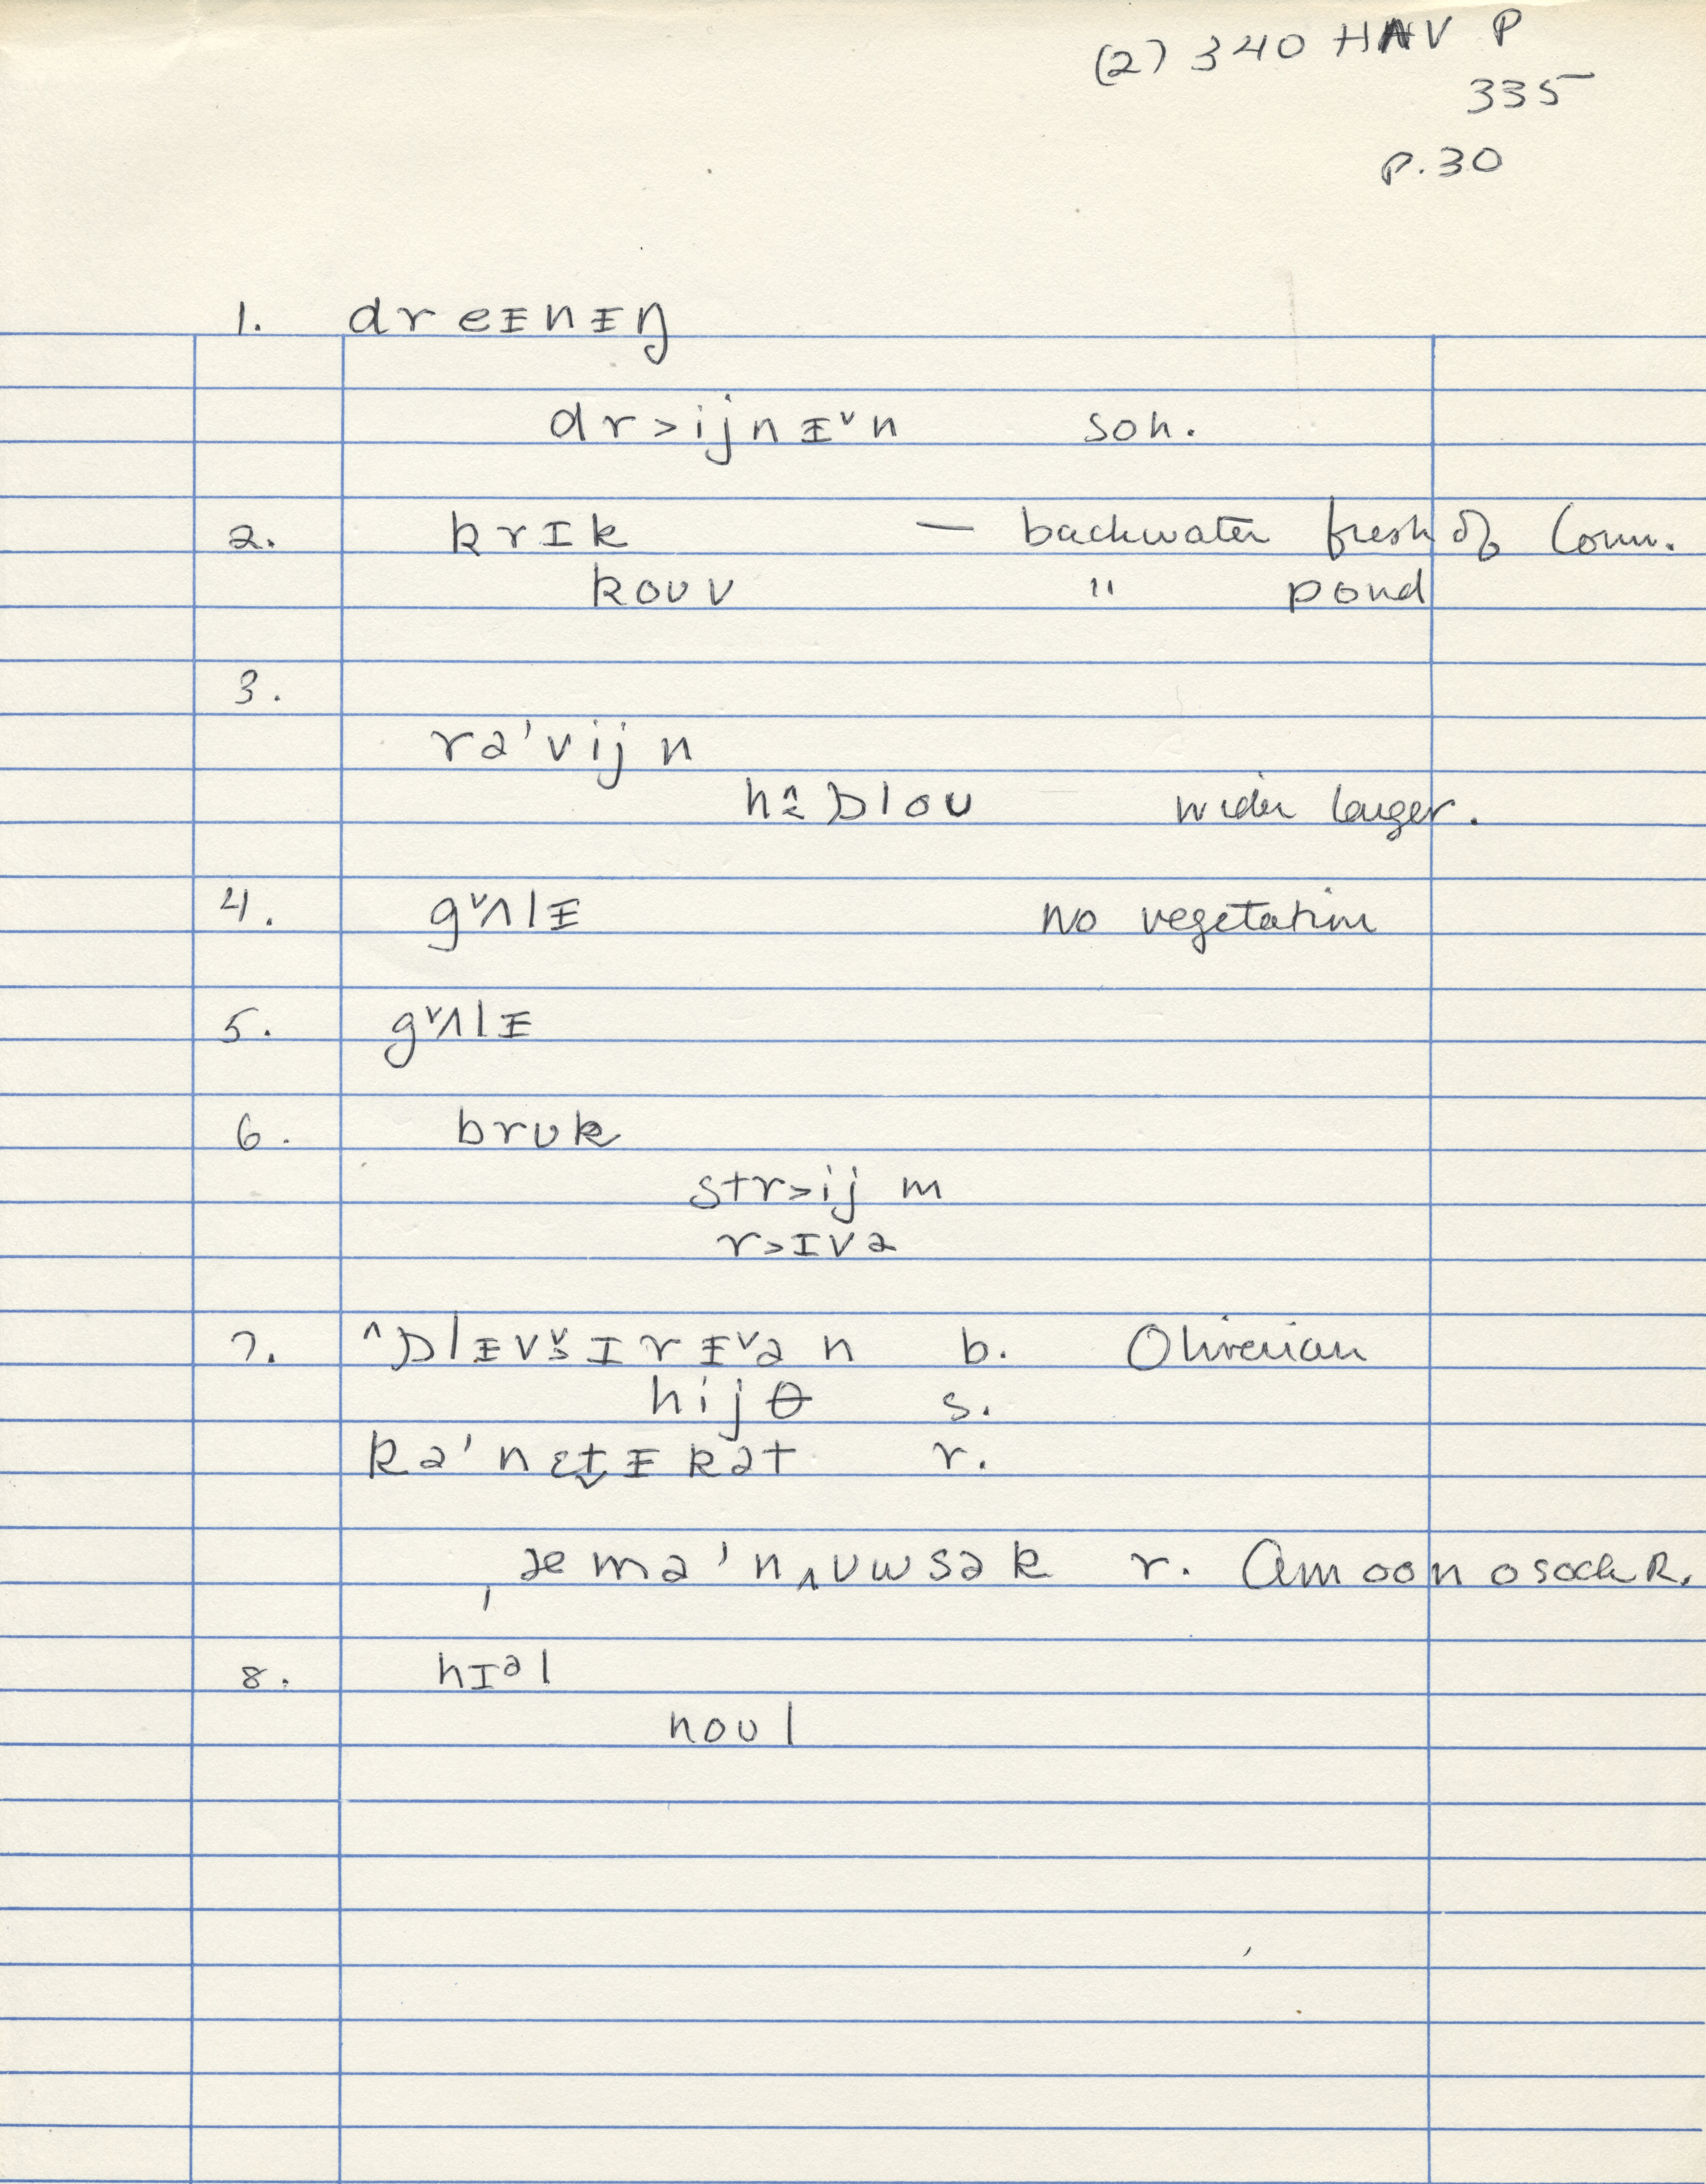 (2) 340 HNV P
335
P. 30
1. dreᵻnᵻŋ
dr>ijnᵻ˅n son.
2. krɪk — backwater fresh of Conn.
koʊv " pond
3.
rə'vijn
hɒloʊ wider larger.
4. g˅ʌlᵻ no vegetation
5. g˅ʌlᵻ
6. brʊk
str>ijm
r>ɪvə
7. ^ɒlᵻv˅ɪrᵻ˅ən b. Oliverian
hijθ s.
kə'nɛt̬ᵻkət r.
ˌæmə'nʌʊwsək r. Amoonosock R.
8. hɪᵊl
noʊl